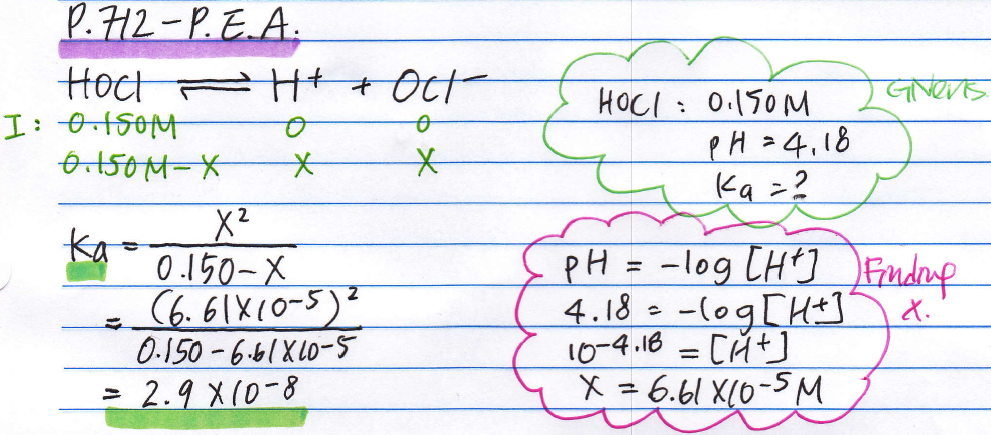 P.712 - P.E.A.
HOCl ⇌ H⁺ + OCl⁻
I: 0.150M 0 0
0.150M - X X X
Ka = X² / 0.150 - X
= (6.61X10-5)² / 0.150 - 6.61X10-5
= 2.9 X10-8
HOCl : 0.150M
Givens
pH = 4.18
Ka = ?
pH = -log [H+]
4.18 = -log [H+]
10-4.18 = [H+]
X = 6.61 X10-5 M
X.